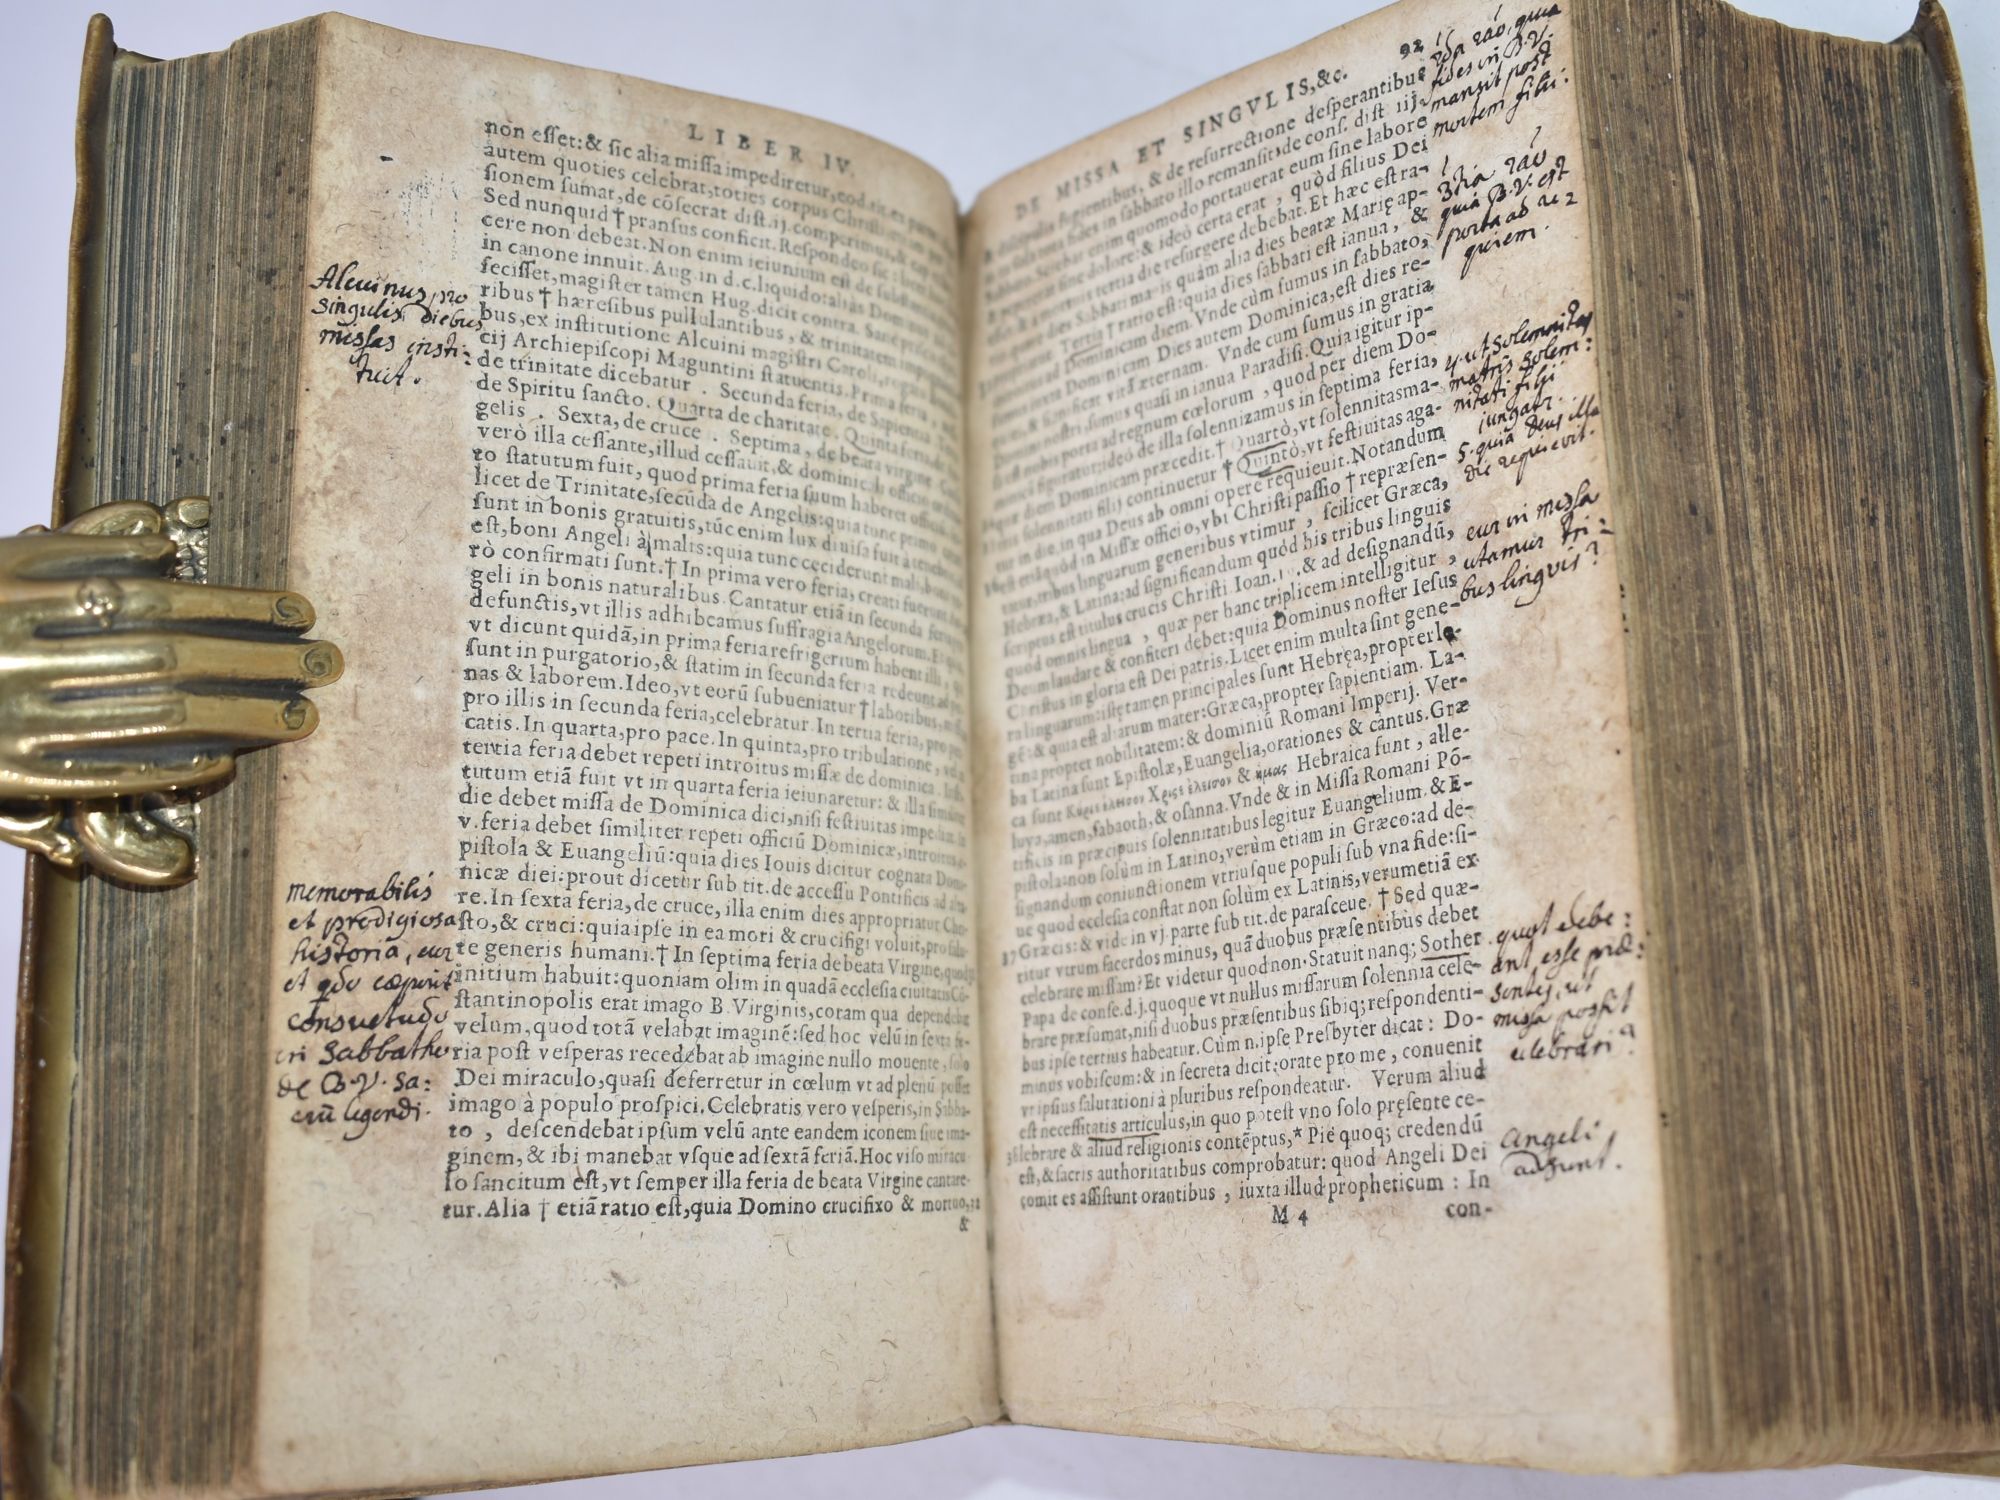 LIBER IV.
non esset: & sic alia missa impediretur, eod. tit. ex parte.
autem quoties celebrat, toties corpus Christi
sionem sumat, de cõsecrat dist. ij. comperimus, & cap.
Sed nunquid † pransus conficit. Respondeo sic:
cere non debeat. Non enim ieiunium est de substantia
in canone innuit. Aug. in d. c. liquido: alias Dominus
fecisset, magister tamen Hug. dicit contra. Sanè
ribus † hæresibus pullulantibus, & trinitatem
bus, ex institutione Alcuini magistri Caroli, rogatu
cij Archiepiscopi Maguntini statuentis. Prima feria,
de trinitate dicebatur. Secunda feria, de Sapientia
de Spiritu sancto. Quarta de charitate. Quinta feria, de
gelis. Sexta, de cruce. Septima, de beata virgine.
verò illa cessante, illud cessauit, & dominicali officio
to statutum fuit, quod prima feria suum haberet officium
licet de Trinitate, secũda de Angelis: quia tunc primo
sunt in bonis gratuitis, tũc enim lux diuisa fuit à tenebris
est, boni Angeli à malis: quia tunc ceciderunt mali, boni
rò confirmati sunt. † In prima vero feria, creati fuerunt
geli in bonis naturalibus. Cantatur etiã in secunda feria
defunctis, vt illis adhibeamus suffragia Angelorum.
vt dicunt quidã, in prima feria refrigerium habent illi,
sunt in purgatorio, & statim in secunda feria redeunt ad
nas & laborem. Ideo, vt eorũ subueniatur † laboribus,
pro illis in secunda feria, celebratur. In tertia feria, pro
catis. In quarta, pro pace. In quinta, pro tribulatione,
tertia feria debet repeti introitus missæ de dominica.
tutum etiã fuit vt in quarta feria ieiunaretur: & illa similiter
die debet missa de Dominica dici, nisi festiuitas impediat.
v. feria debet similiter repeti officiũ Dominicæ, introitus
pistola & Euangeliũ: quia dies Iouis dicitur cognata Domi-
nicæ diei: prout dicetur sub tit. de accessu Pontificis ad alta-
re. In sexta feria, de cruce, illa enim dies appropriatur Chri-
sto, & cruci: quia ipse in ea mori & crucifigi voluit, pro salu-
te generis humani. † In septima feria de beata Virgine, quod
initium habuit: quoniam olim in quadã ecclesia ciuitatis Cõ-
stantinopolis erat imago B. Virginis, coram qua dependebat
velum, quod totã velabat imaginẽ: sed hoc velũ in sexta fe-
ria post vesperas recedebat ab imagine nullo mouente, solo
Dei miraculo, quasi deferretur in cœlum vt ad plenũ posset
imago à populo prospici. Celebratis vero vesperis, in Sabba-
to, descendebat ipsum velũ ante eandem iconem siue ima-
ginem, & ibi manebat vsque ad sextã feriã. Hoc viso miracu-
lo sancitum est, vt semper illa feria de beata Virgine cantare-
tur. Alia † etiã ratio est, quia Domino crucifixo & mortuo,
&
Alcuinus pro
singulis diebus
missas insti:
tuit.
memorabilis
et prodigiosa
historia, cur
et qdo cæperit
consuetudo
in Sabbatho
de B. V. Sa:
crũ legendi.
DE MISSA ET SINGVLIS, &c. 92
discipulis fugientibus, & de resurrectione desperantibus
sola tota fides in sabbato illo remansit, de cons. dist. iij.
enim quomodo portauerat eum sine labore
sine dolore: & ideò certa erat, quòd filius Dei
tertia die resurgere debebat. Et hæc est ra-
dies Sabbati magis quàm alia dies beatæ Marię ap-
Tertia † ratio est: quia dies sabbati est ianua, &
ad Dominicam diem. Vnde cùm sumus in sabbato,
Dominicam. Dies autem Dominica, est dies re-
vitã æternam. Vnde cum sumus in gratia
sumus quasi in ianua Paradisi. Quia igitur ip-
nobis porta ad regnum cœlorum, quod per diem Do-
figuratur: ideo de illa solennizamus in septima feria,
diem Dominicam præcedit. † Quartò, vt solennitas ma-
solennitati filij continuetur † Quintò, vt festiuitas aga-
tur in die, in qua Deus ab omni opere requieuit. Notandum
est quòd in Missæ officio, vbi Christi passio † repræsen-
tatur, tribus linguarum generibus vtimur, scilicet Græca,
Hebræa, & Latina: ad significandum quòd his tribus linguis
scriptus est titulus crucis Christi Ioan. & ad designandũ,
quod omnis lingua, quæ per hanc triplicem intelligitur,
Deum laudare & confiteri debet: quia Dominus noster Iesus
Christus in gloria est Dei patris. Licet enim multa sint gene-
ra linguarum: istę tamen principales sunt Hebręa, propter le-
gẽ: & quia est aliarum mater: Græca, propter sapientiam. La-
tina propter nobilitatem: & dominiũ Romani Imperij. Ver-
ba Latina sunt Epistolæ, Euangelia, orationes & cantus. Græ
ca sunt Κύριε ἐλεισον Χριςε ἐλεισον & ἡμας Hebraica sunt, alle-
luya, amen, sabaoth, & osanna. Vnde & in Missa Romani Põ-
tificis in præcipuis solennitatibus legitur Euangelium. & E-
pistola: non solùm in Latino, verùm etiam in Græco: ad de-
signandum coniunctionem vtriusque populi sub vna fide: si-
ue quod ecclesia constat non solùm ex Latinis, verumetiã ex
17 Græcis: & vide in vj. parte sub tit. de parasceue. † Sed quæ-
ritur vtrum sacerdos minus, quã duobus præsentibus debet
celebrare missam? Et videtur quod non. Statuit nanq; Sother
Papa de conse. d. j. quoque vt nullus missarum solennia cele-
brare præsumat, nisi duobus præsentibus sibiq; respondenti-
bus ipse tertius habeatur. Cùm n. ipse Presbyter dicat: Do-
minus vobiscum: & in secreta dicit: orate pro me, conuenit
vt ipsius salutationi à pluribus respondeatur. Verum aliud
est necessitatis articulus, in quo potest vno solo pręsente ce-
lebrare & aliud religionis contẽptus, * Piè quoq; credendũ
est, & sacris authoritatibus comprobatur: quod Angeli Dei
comites assistunt orantibus, iuxta illud propheticum: In
M 4 con-
2da raõ, quia
fides in B. V.
mansit post
mortem filii.
3tia raõ
quia B. V. est
porta ad re
quiem.
4. ut solemnitas
matris solem:
nitati filii
jungatr.
5. quia Deus illa
die requievit.
cur in missa
utamur tri:
bus linguis?
quot debe:
ant esse præ:
sentes, ut
missa possit
celebrari?
Angeli
adsunt.